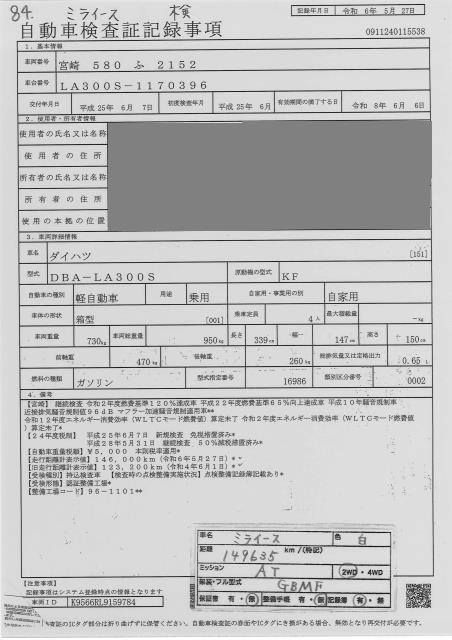 84. ミライース 検
記録年月日 令和 6年 5月 27日
自動車検査証記録事項
0911240115538
1. 基本情報
車両番号 宮崎 580 ふ 2152
車台番号 LA300S-1170396
交付年月日 平成 25年 6月 7日 初度検査年月 平成 25年 6月 有効期間の満了する日 令和 8年 6月 6日
2. 使用者・所有者情報
使用者の氏名又は名称
使用者の住所
所有者の氏名又は名称
所有者の住所
使用の本拠の位置
3. 車両詳細情報
車名 ダイハツ [151]
型式 DBA-LA300S 原動機の型式 KF
自動車の種別 軽自動車 用途 乗用 自家用・事業用の別 自家用
車体の形状 箱型 [001] 乗車定員 4人 最大積載量 -kg
車両重量 730kg 車両総重量 950kg 長さ 339cm 幅 147cm 高さ 150cm
前軸重 470kg 後軸重 260kg 総排気量又は定格出力 0.65 L
燃料の種類 ガソリン 型式指定番号 16986 類別区分番号 0002
4. 備考
【宮崎】 継続検査 令和2年度燃費基準120%達成車 平成22年度燃費基準65%向上達成車 平成10年騒音規制車
近接排気騒音規制値96dB マフラー加速騒音規制適用車**
令和12年度エネルギー消費効率(WLTCモード燃費値)算定未了 令和2年度エネルギー消費効率(WLTCモード燃費値
)算定未了*
【24年度税制】 平成25年6月7日 新規検査 免税措置済み*
平成28年5月31日 継続検査 50%減税措置済み*
【自動車重量税額】¥5,000 本則税率適用*
【走行距離計表示値】146,000km(令和6年5月27日)*
【旧走行距離計表示値】123,200km(令和4年6月1日)*
【受検種別】持込検査車 【検査時の点検整備実施状況】点検整備記録簿記載あり*
【受検形態】認証整備工場*
【整備工場コード】96-1101**
車名 ミライース 色 白
距離 149635 km/(特記)
ミッション AT 2WD・4WD
架装・フル型式 GBMF
保証書 有・無 整備手帳 有・無 記録簿 有・無
【注意事項】
記録事項はシステム登録時点の情報となります
車両ID K9566RL9159784
査証のICタグ部分は折り曲げずに保管ください。自動車検査証の券面やICタグに書き損があると、無効となり再交付が必要です。